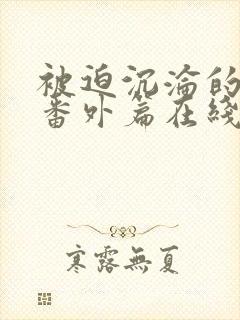 被迫沉淪的
番外篇在綫
寒露無夏